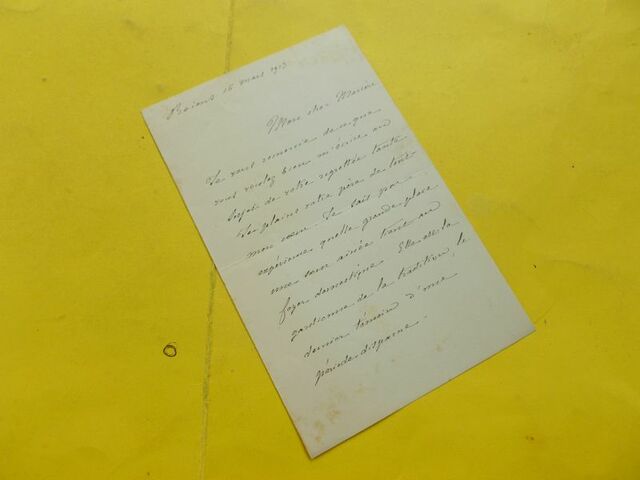 16 mars 1913
Mon cher
Je vous remercie de ce que
vous voulez bien m'écrire au
sujet de votre regrettée tante
Je plains votre père de tout
mon cœur. Je sais par
expérience quelle grande place
une sœur ainée tient au
foyer domestique. Elle est la
gardienne de la tradition, le
dernier témoin d'une
période disparue.